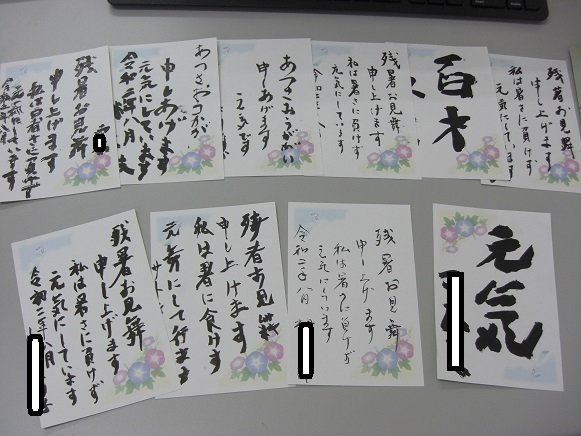 残暑お見舞
申し上げます
私は暑さに負けず
元気にしています
令和二年八月
あつさおうかが
申しあげます
元気にしています
令和二年八月
あつさおうかがい
申しあげます
元気です
残暑お見舞
申し上げます
私は暑さに負けず
元気にしています
令和二年八月
百才
残暑お見舞
申し上げます
私は暑さに負けず
元気にしています
残暑お見舞
申し上げます
私は暑さに負けず
元気にしています
令和二年八月
残暑お見舞
申し上げます
私は暑に負けず
元気にして行ます
残暑お見舞
申し上げます
私は暑さに負けず
元気にしています
令和二年八月
元気